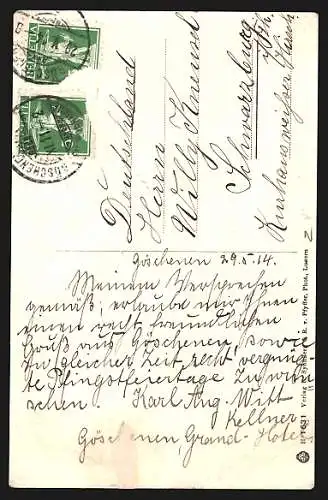 HELVETIA
HELVETIA
GÖSCHENEN
Deutschland
Herrn
Willy
Schwarzburg
i/Th.
Göschenen 29.5.14.
Meinem Versprechen
gemäß, erlaube mir Ihnen
einen recht freundlichen
Gruß aus Göschenen, sowie
zu gleicher Zeit recht vergnüg-
te Pfingstfeiertage zu wün-
schen. Karl Aug. Witt
Kellner
Göschenen, Grand-Hotel
Phot., Luzern